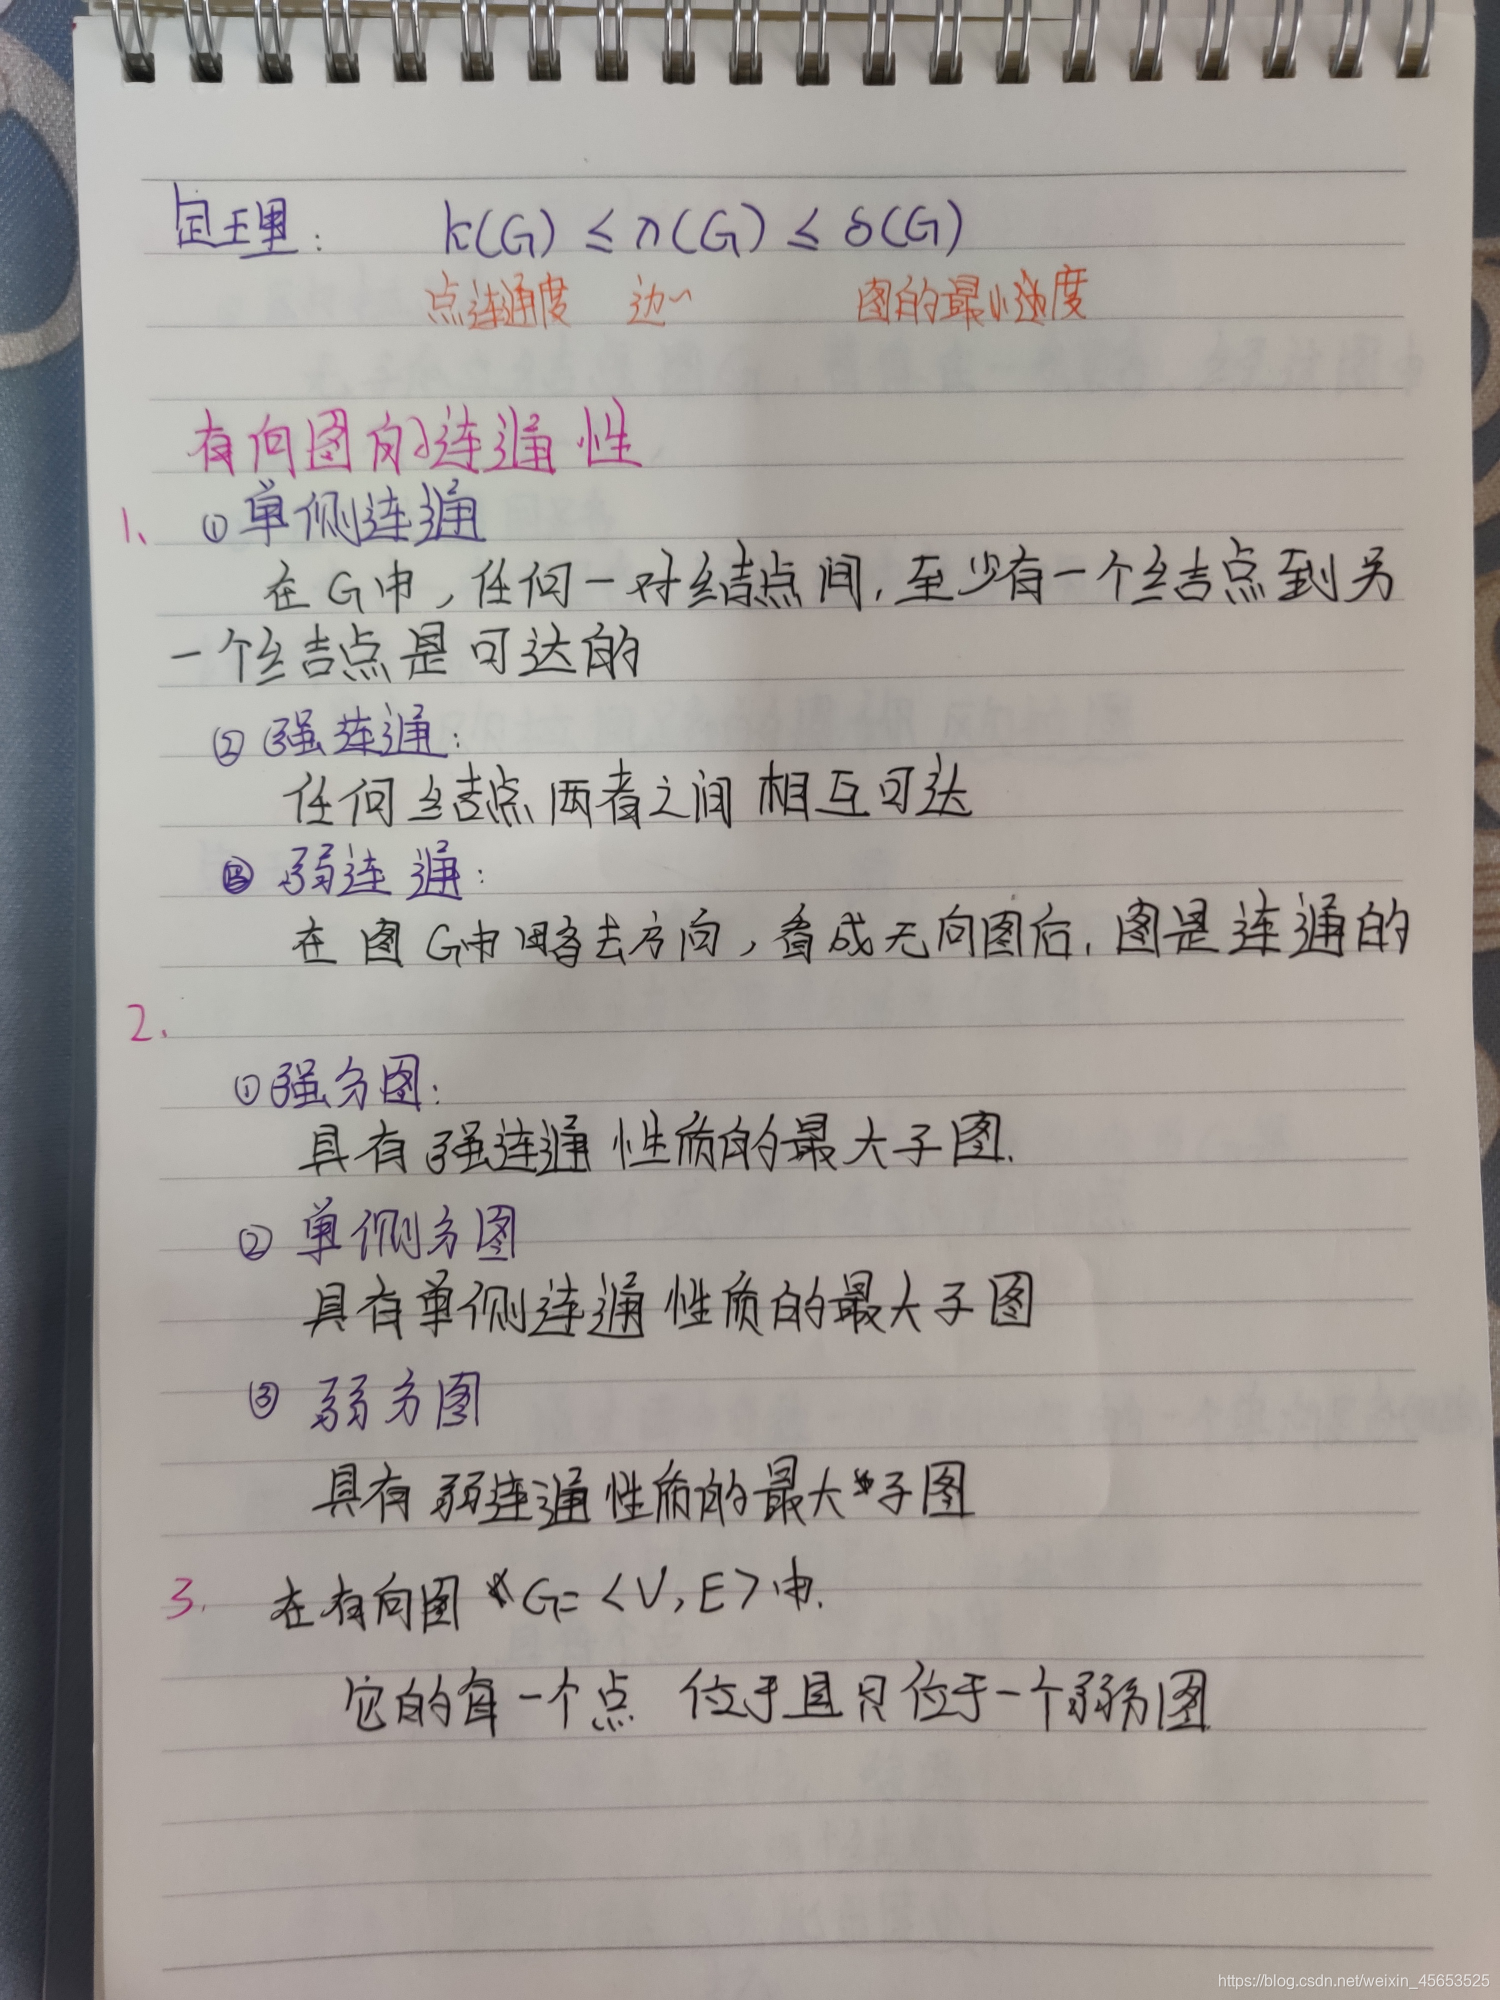 定理: k(G) ≤ λ(G) ≤ δ(G)
点连通度 边~ 图的最小度
有向图的连通性
1、 ①单侧连通
在G中,任何一对结点间,至少有一个结点到另
一个结点是可达的
② 强连通:
任何结点两者之间相互可达
③ 弱连通:
在图G中略去方向,看成无向图后,图是连通的
2、
①强分图:
具有强连通性质的最大子图.
② 单侧分图
具有单侧连通性质的最大子图
③ 弱分图
具有弱连通性质的最大子图
3. 在有向图 G=<V,E>中.
它的每一个点 位于且只位于一个弱分图
https://blog.csdn.net/weixin_45653525